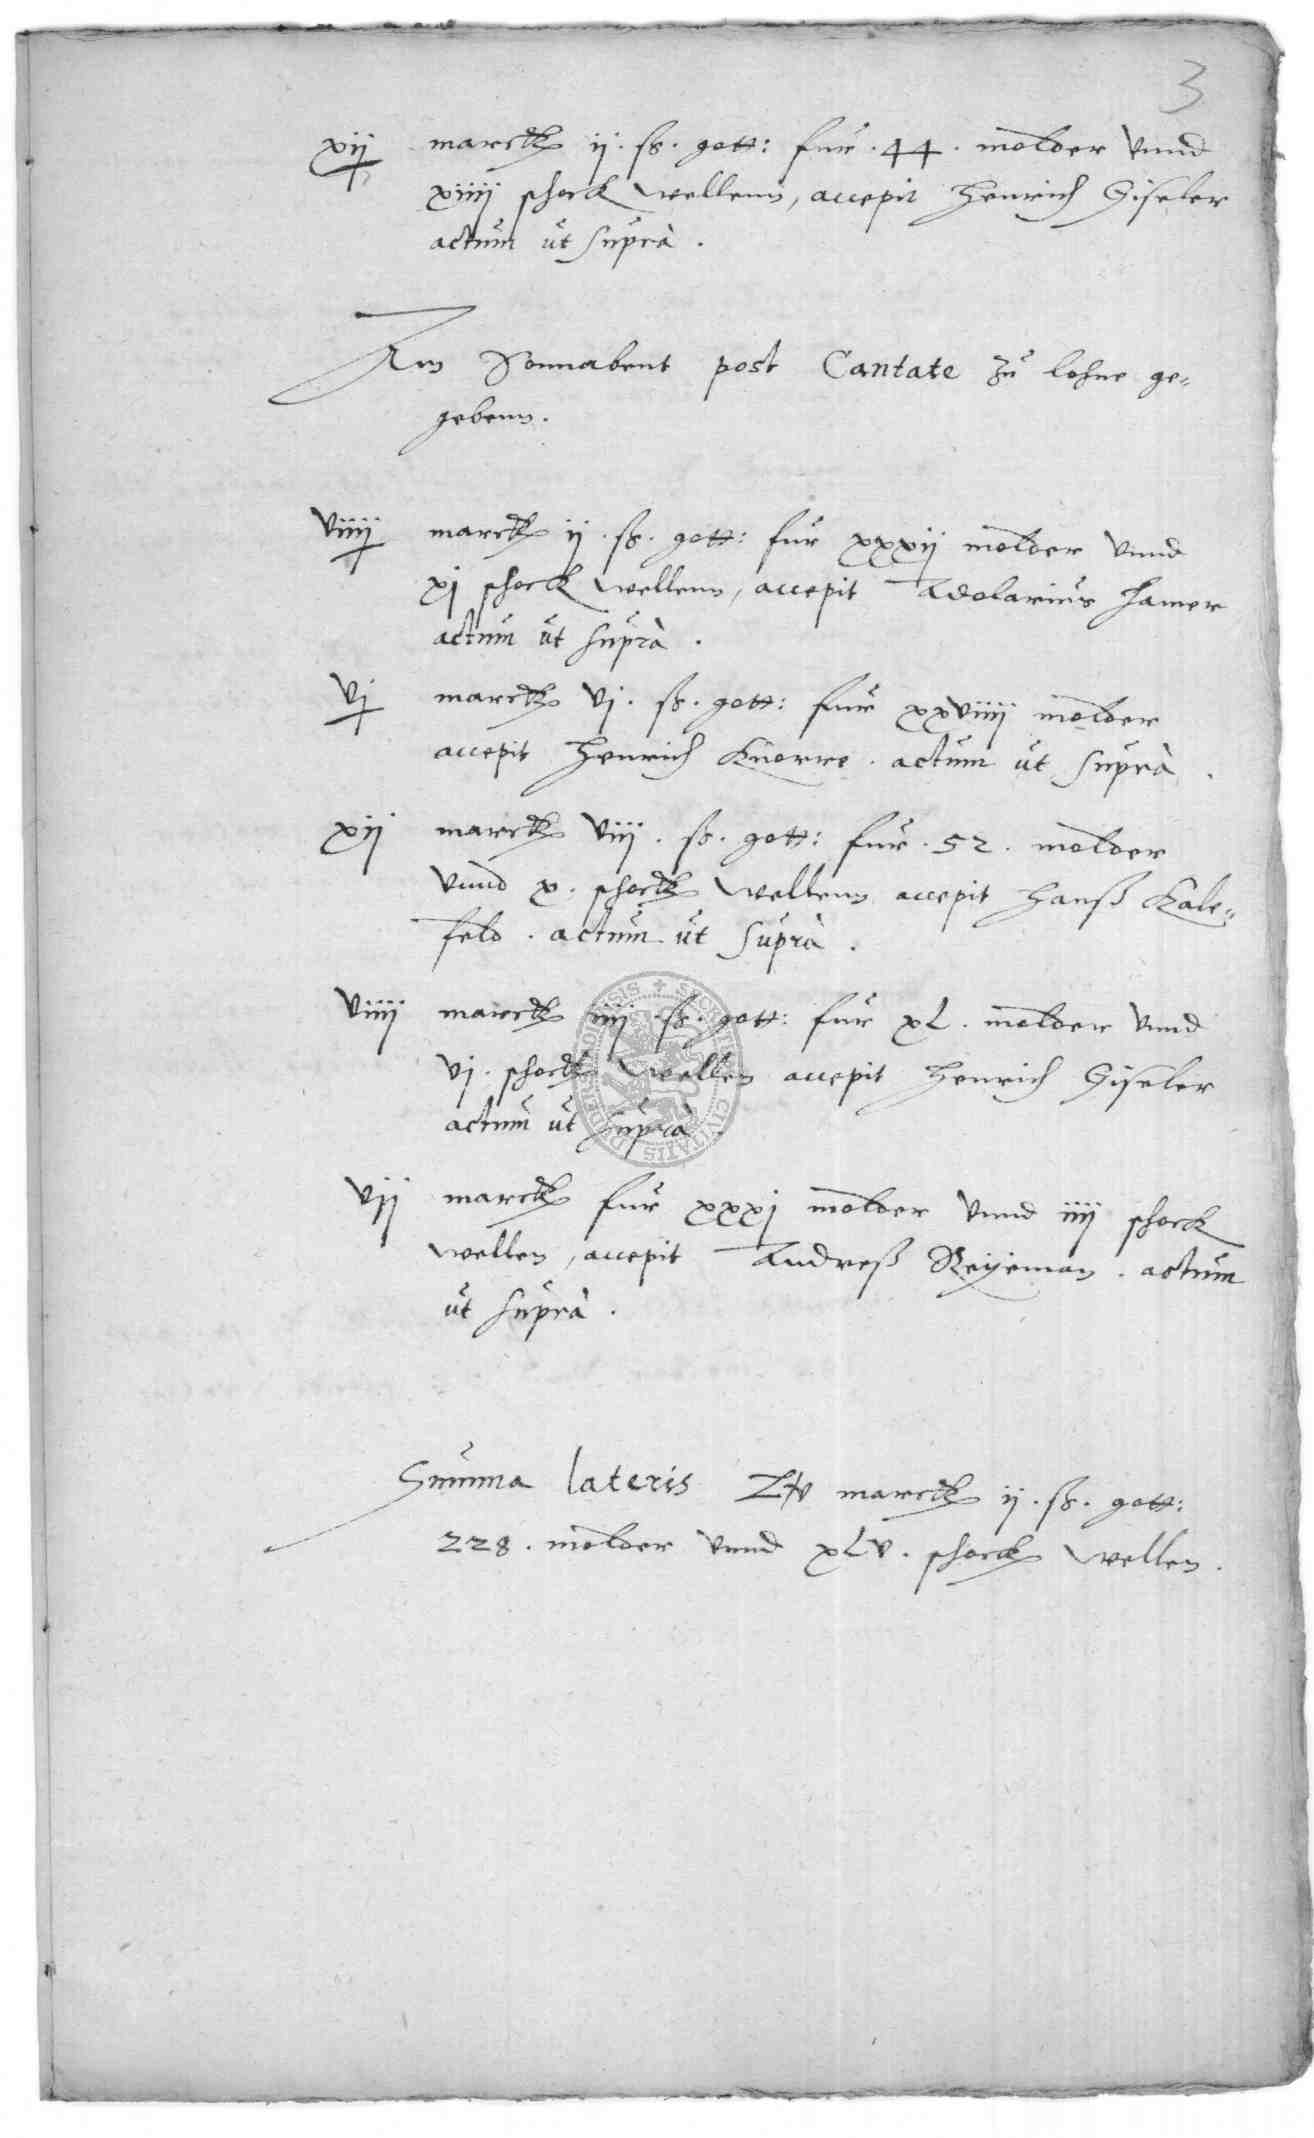 3
xij marck ij. ß. gott: fur .44. molder vnnd
xiiij schock wellenn, accepit Henrich Giseler
actum ut suprà.
Am Sonnabent post Cantate zu lohne ge=
gebenn.
viiij marck ij. ß. gott: fur xxxij molder vnnd
xj schock wellenn, accepit Adolarius Hamer
actum ut suprà.
vj marck vj. ß. gott: fur xxviiij molder
accepit Henrich Knorre. actum ut suprà.
xij marck viij. ß. gott: fur .52. molder
vnnd x. schock wellenn accepit Hanß Kale=
feld. actum ut suprà.
viiij marck iiij. ß. gott: fur xL. molder vnnd
vj. schock wellen accepit Henrich Giseler
actum ut suprà.
vij marck fur xxxj molder vnnd iiij schock
wellen, accepit Andreß Reyeman. actum
ut suprà.
Summa lateris marck ij. ß. gott:
228. molder vnnd xLv. schock wellen.